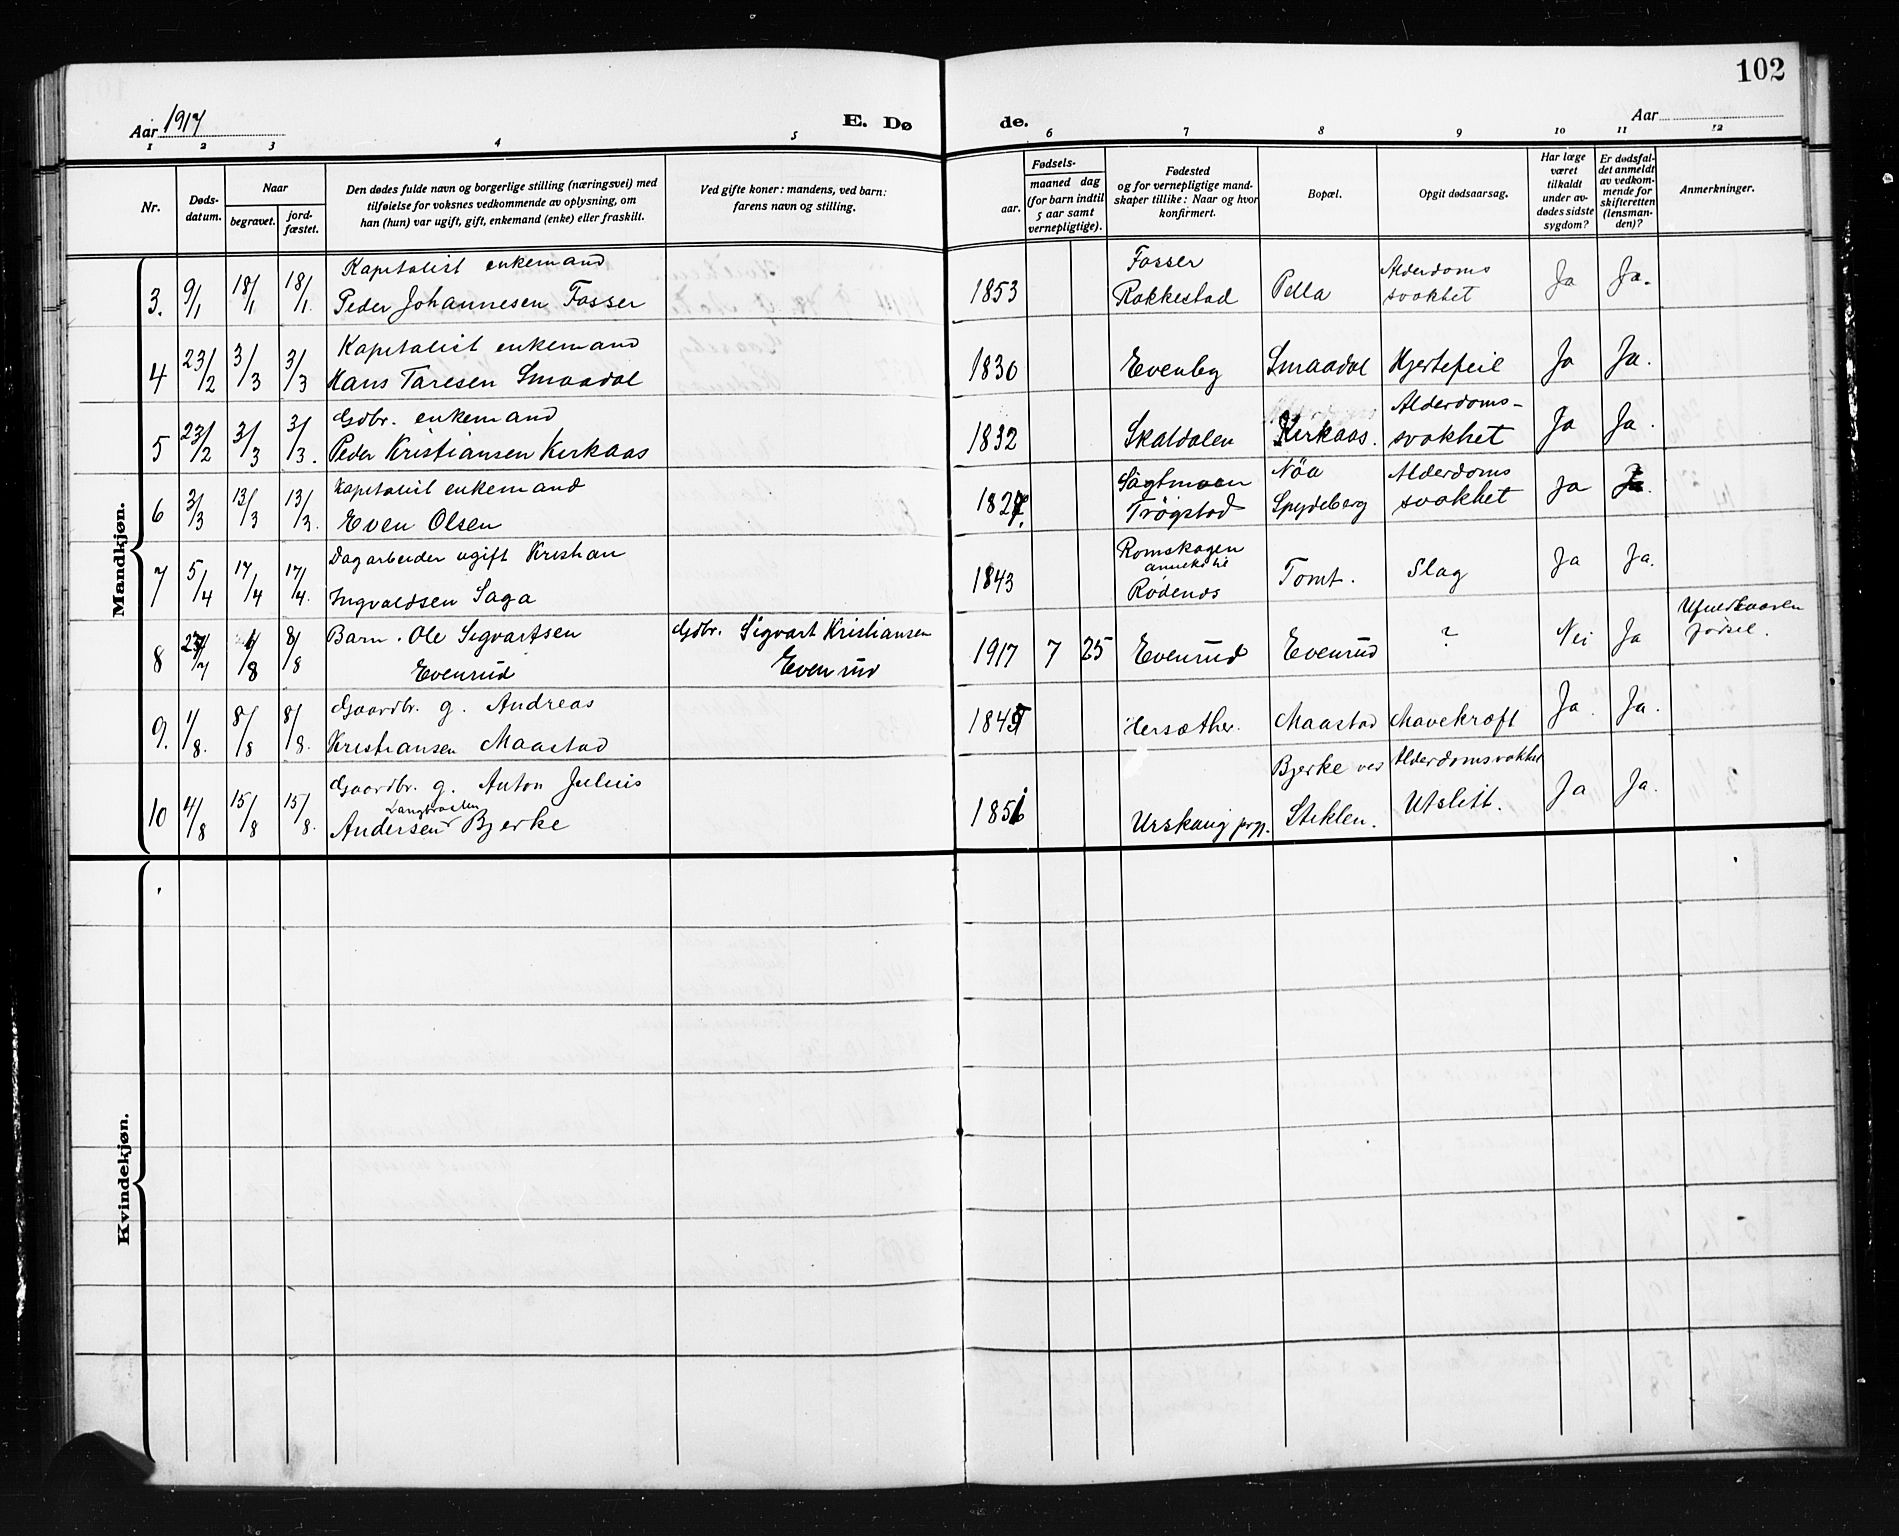 102
Aar 1917
E. Dø
de.
Aar
1 2 3 4 5 6 7 8 9 10 11 12
Nr.
Døds-
datum.
Naar
begravet.
jord-
fæstet.
Den dødes fulde navn og borgerlige stilling (næringsvei) med
tilføielse for voksnes vedkommende av oplysning, om
han (hun) var ugift, gift, enkemand (enke) eller fraskilt.
Ved gifte koner: mandens, ved barn:
farens navn og stilling.
Fødsels-
aar.
maaned dag
(for barn indtil
5 aar samt
vernepligtige).
Fødested
og for vernepligtige mand-
skaper tillike: Naar og hvor
konfirmert.
Bopæl.
Opgit dødsaarsag.
Har læge
været
tilkaldt
under av-
dødes sidste
sygdom?
Er dødsfal-
det anmeldt
av vedkom-
mende for
skifteretten
(lensman-
den)?
Anmerkninger.
Mandkjøn.
3. 9/1 18/1 18/1. Kapitalist enkemand
Peder Johannesen Fosser
1853 Fosser
Rakkestad
Pella
Alderdoms
svakhet
Ja Ja.
4 23/2 3/3 3/3 Kapitalist enkemand
Hans Taresen Smaadal
1830 Evenby Smaadal Hjertefeil Ja Ja.
5 23/2 3/3 3/3. Gdbr. enkemand
Peder Kristiansen Kirkaas
1832 Skaldalen Kirkaas.
Alderdoms-
svakhet
Ja Ja.
6 3/3 13/3 13/3. Kapitalist enkemand
Even Olsen
Trøgstad
Nøa
Spydeberg
Alderdoms
svakhet
Ja Ja.
7 5/4 17/4 17/4. Dagarbeider ugift Kristian
Ingvaldsen Saga
1843 Romskogen
anneks til
Rødenes
Tomt. Slag Ja Ja.
8 8/8 8/8 Barn. Ole Sigvartsen
Evenrud
Gdbr. Sigvart Kristiansen
Evenrud
1917 7 25 Evenrud Evenrud ? Nei Ja
Ufuldbaaren
fødsel.
9. 1/8. 8/8 8/8. Gaardbr. g. Andreas
Kristiansen Maastad
Hersæther. Maastad Mavekræft Ja. Ja.
10 4/8 15/8 15/8. Gaardbr. g. Anton Julius
Langbraaten
Andersen Bjerke
Urskaug prgj.
Bjerke ved
Steklen.
Alderdomsvakhet
Utslitt.
Ja Ja.
Kvindekjøn.